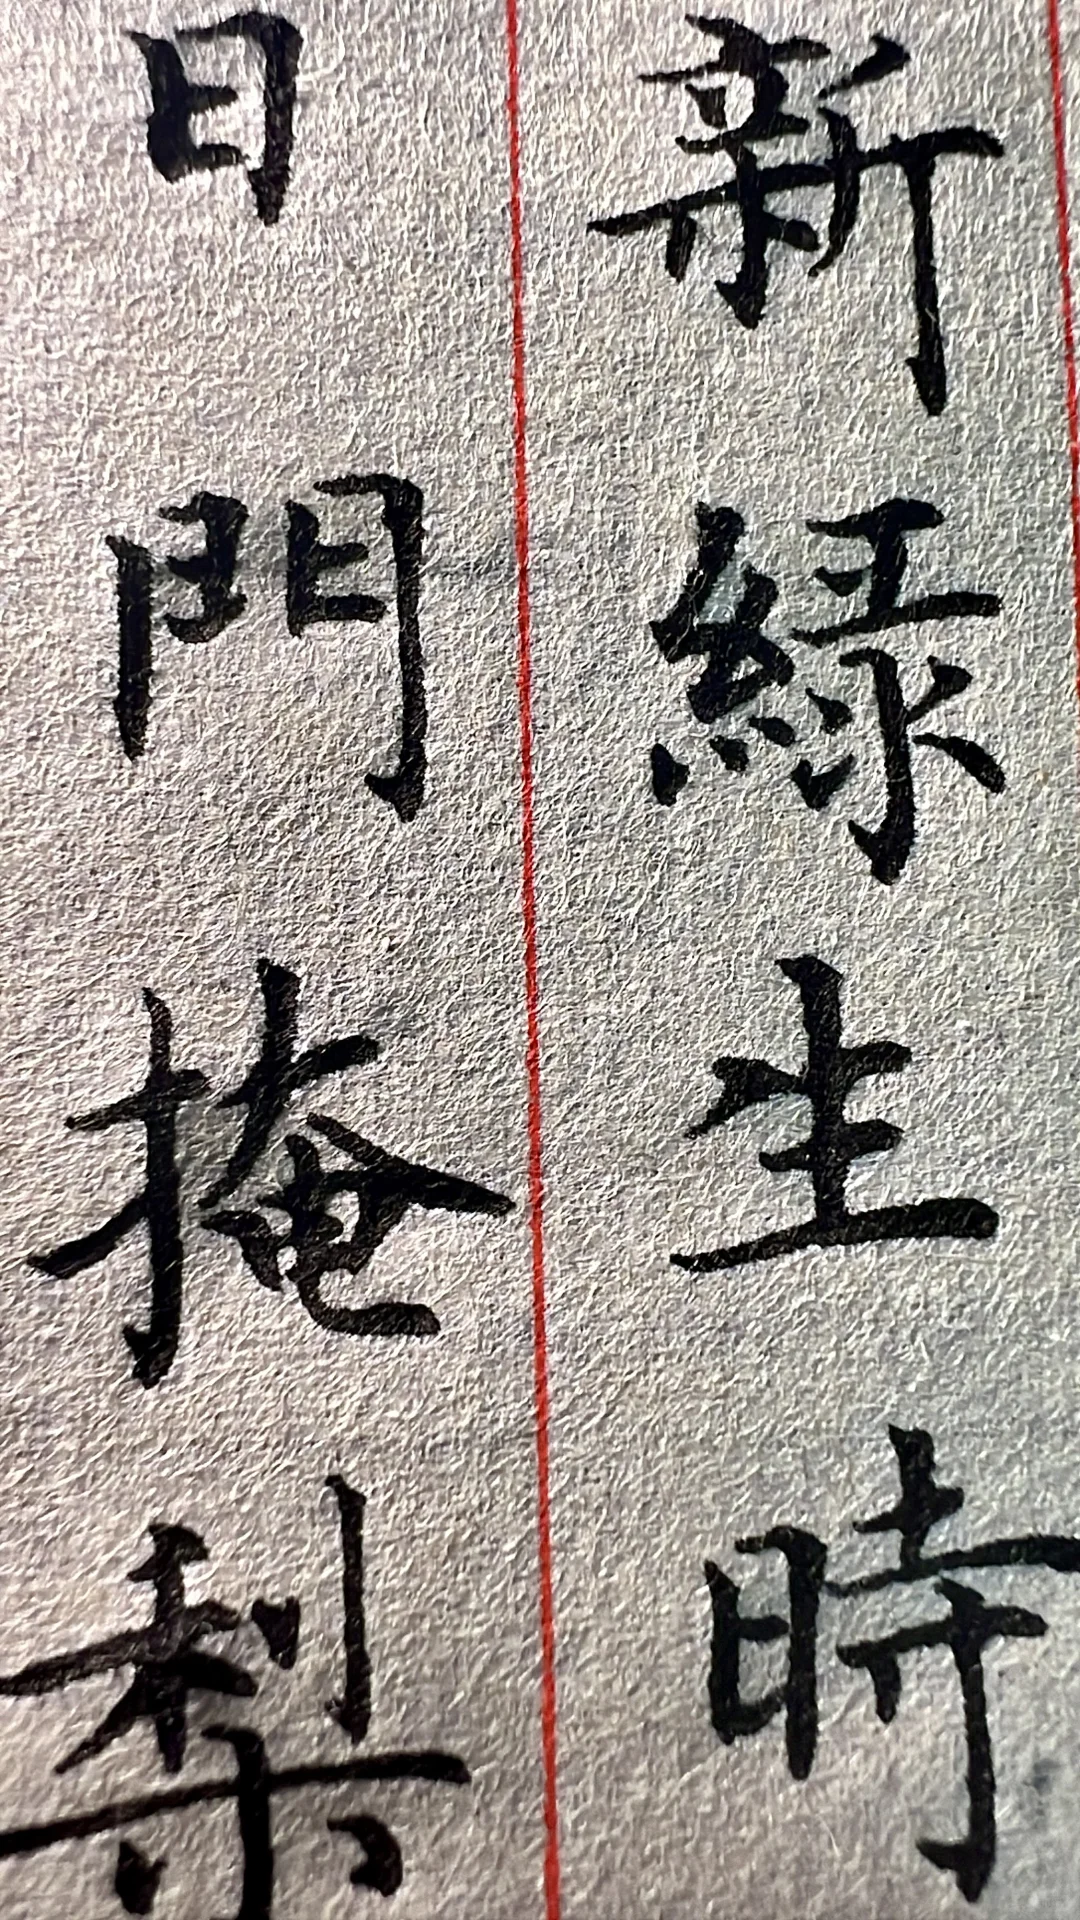 新綠生時
日門掩梨